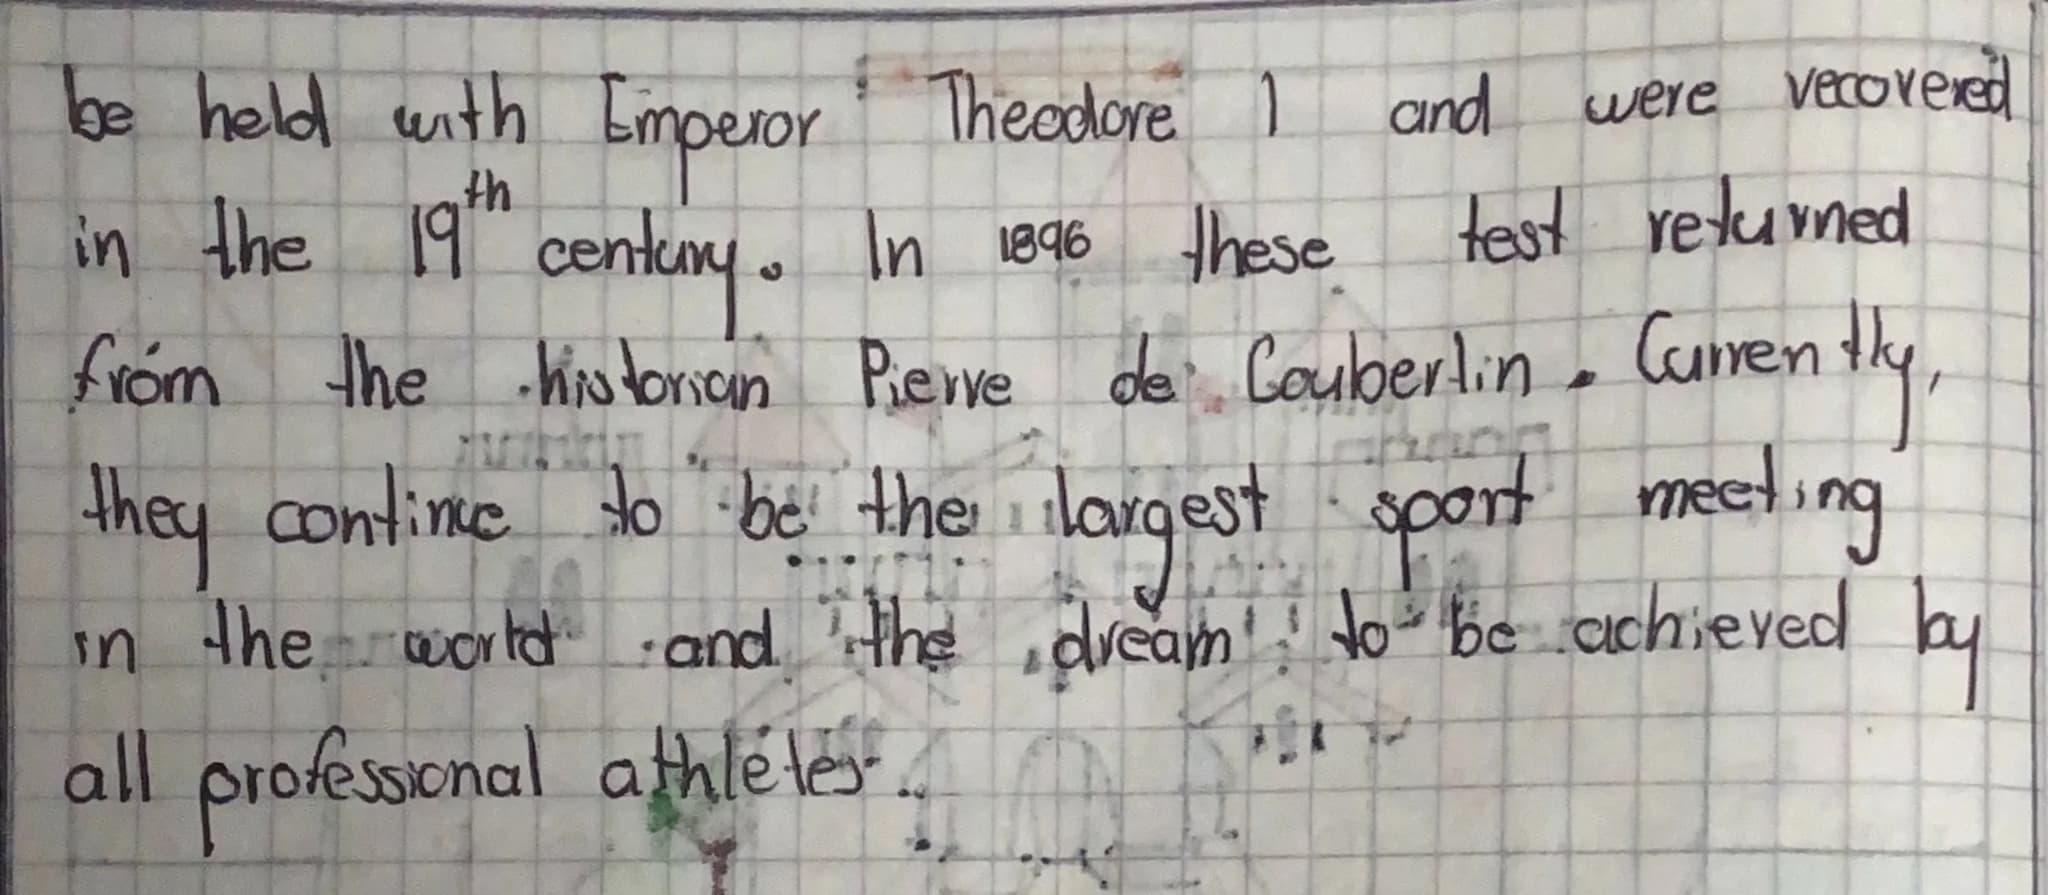 be held with Emperor Theodore I and were recovered
in the 19th century. In 1896 these test returned
from the historian Pierre de Coubertin. Currently,
they continue to be the largest sport meeting
in the world and the dream to be achieved by
all professional athletes.